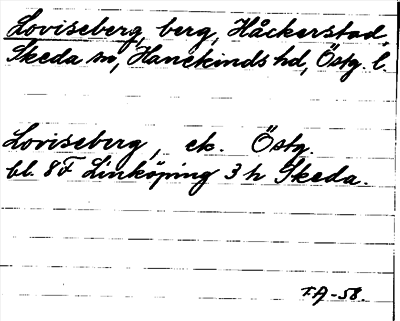 Loviseberg, berg, Håckerstad,
Skeda sn, Hanekinds hd, Östg. l.
Loviseberg, ek. Östg.
bl. 8F Linköping 3 h Skeda.
F.A-58.